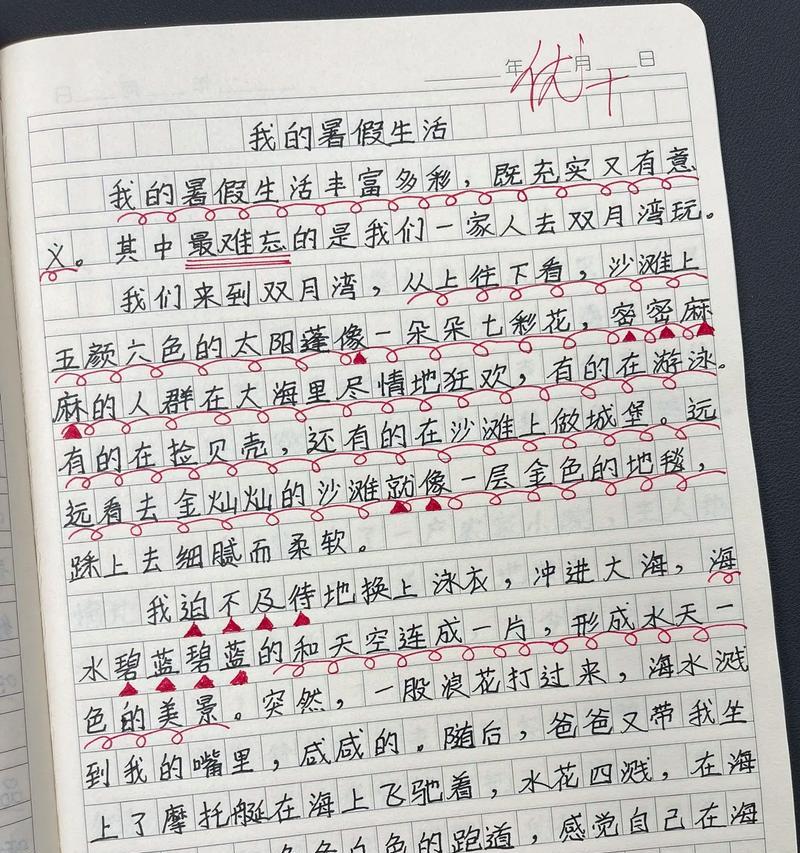 年 月 日
优+
我的暑假生活
我的暑假生活丰富多彩，既充实又有意
义。其中最难忘的是我们一家人去双月湾玩。
我们来到双月湾，从上往下看，沙滩上
五颜六色的太阳蓬像一朵朵七彩花，密密麻
麻的人群在大海里尽情地狂欢，有的在游泳。
有的在捡贝壳，还有的在沙滩上做城堡。远
远看去金灿灿的沙滩就像一层金色的地毯，
踩上去细腻而柔软。
我迫不及待地换上泳衣，冲进大海，海
水碧蓝碧蓝的和天空连成一片，形成水天一
色的美景。突然，一股浪花打过来，海水溅
到我的嘴里，咸咸的。随后，爸爸又带我坐
上了摩托艇在海上飞驰着，水花四溅，在海
白色的跑道，感觉自己在海